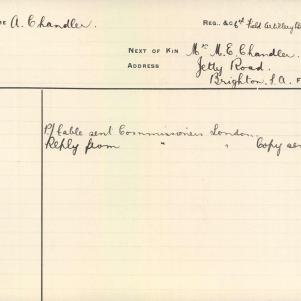 A. Chandler.
REG. &C 6th Field Artillery
NEXT OF KIN Mrs M. E. Chandler.
ADDRESS Jetty Road.
Brighton. S.A.
Cable sent Commissioners London.
Reply from " " Copy sen